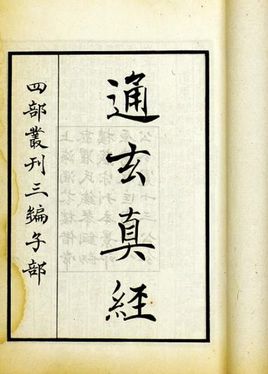 通玄真经
四部叢刊三編子部